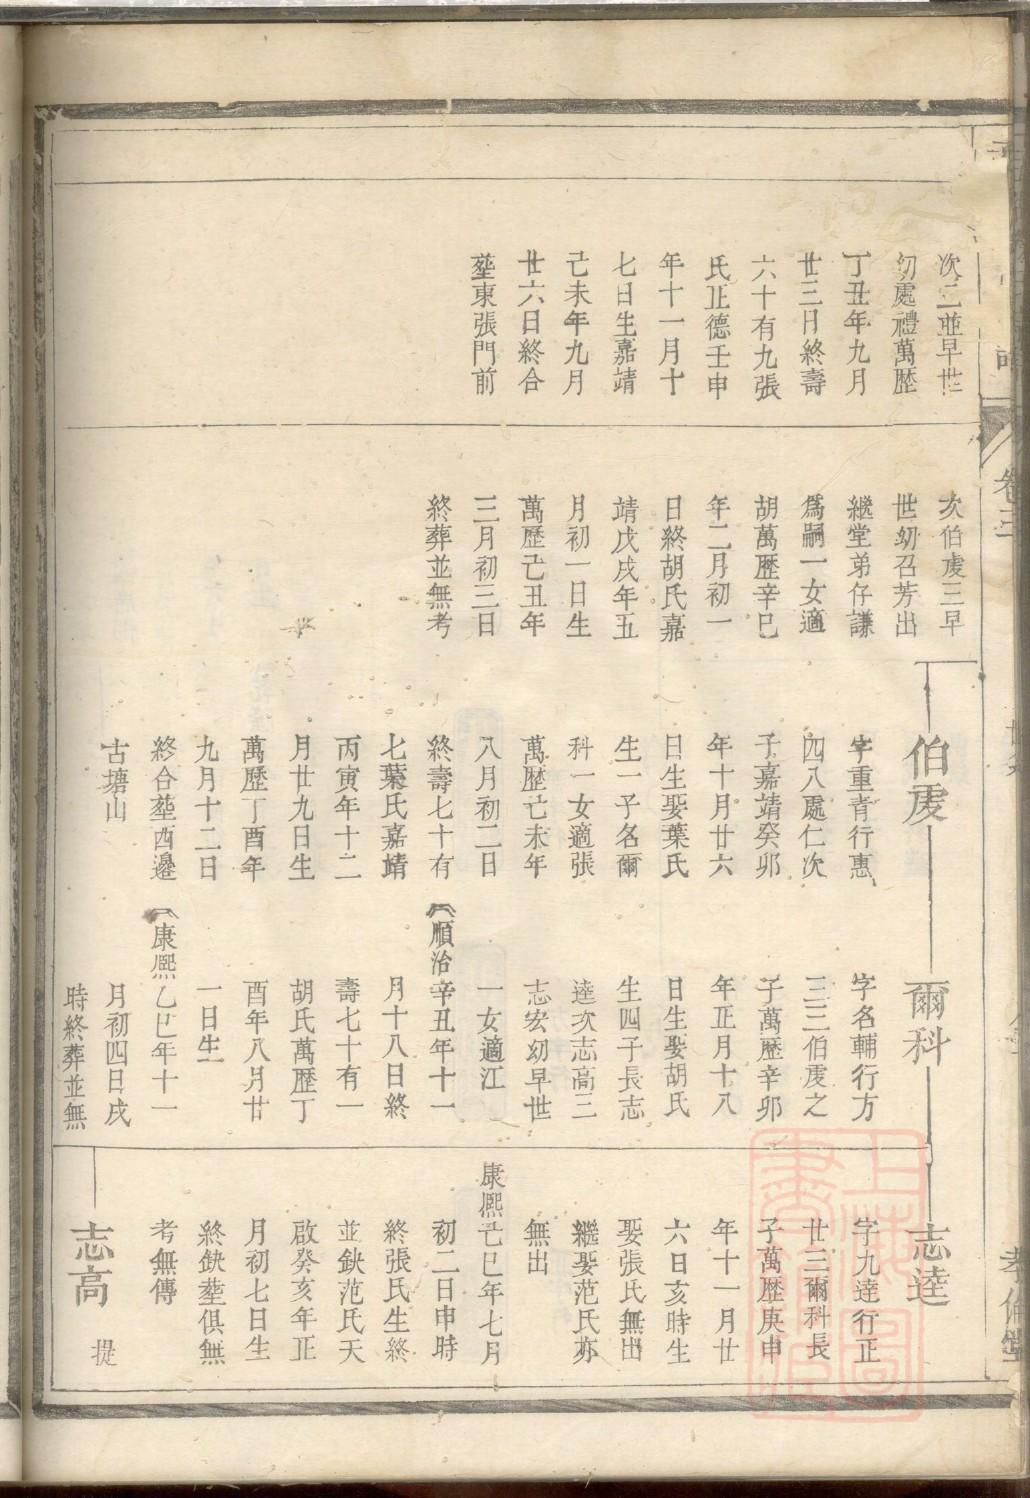 次二並早世
幼處禮萬歷
丁丑年九月
廿三日終壽
六十有九張
氏正德壬申
年十一月十
七日生嘉靖
己未年九月
廿六日終合
塟東張門前
次伯虔三早
世幼召芳出
繼堂弟仔謙
爲嗣一女適
胡萬歷辛巳
年二月初一
日終胡氏嘉
靖戊戌年五
月初一日生
萬歷己丑年
三月初三日
終葬並無考
伯虔
字重靑行惠
四八處仁次
子嘉靖癸卯
年十月廿六
日生娶葉氏
生一子名爾
科一女適張
萬歷己未年
八月初二日
終壽七十有
七葉氏嘉靖
丙寅年十二
月廿九日生
萬歷丁酉年
九月十二日
終合塟西邊
古塘山
爾科
字名輔行方
三三伯虔之
子萬歷辛卯
年正月十八
日生娶胡氏
生四子長志
逹次志高三
志宏幼早世
一女適江
順治辛丑年十一
月十八日終
壽七十有一
胡氏萬歷丁
酉年八月廿
一日生
康熙乙巳年十一
月初四日戌
時終葬並無
志逹
字九逹行正
廿三爾科長
子萬歷庚申
年十一月廿
六日亥時生
娶張氏無出
繼娶范氏亦
無出
康熙己巳年七月
初二日申時
終張氏生終
並鈌范氏天
啟癸亥年正
月初七日生
終鈌塟俱無
考無傳
志高
提
卷三